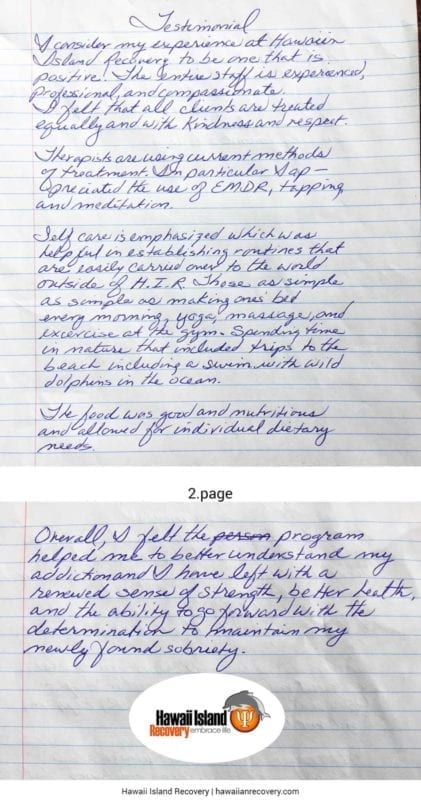 Testimonial
I consider my experience at Hawaiin
Island Recovery to be one that is
positive. The entire staff is experienced,
professional, and compassionate.
I felt that all clients are treated
equally and with kindness and respect.
Therapists are using current methods
of treatment. In particular I ap-
preciated the use of EMDR, tapping,
and meditation.
Self care is emphasized which was
helpful in establishing routines that
are easily carried over to the world
outside of H.I.R. Those as simple
as simple as making ones bed
every morning, yoga, massage, and
excercise at the gym. Spending time
in nature that included trips to the
beach including a swim with wild
dolphins in the ocean.
The food was good and nutritious
and allowed for individual dietary
needs.
2.page
Overall, I felt the person program
helped me to better understand my
addiction and I have left with a
renewed sense of strength, better health,
and the ability to go forward with the
determination to maintain my
newly found sobriety.
Hawaii Island
Recovery embrace life
Hawaii Island Recovery | hawaiianrecovery.com